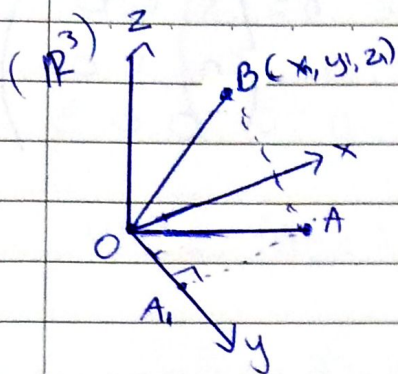 (ℝ³) Z
B(x₁, y₁, z₁)
x
O
A
A₁
y